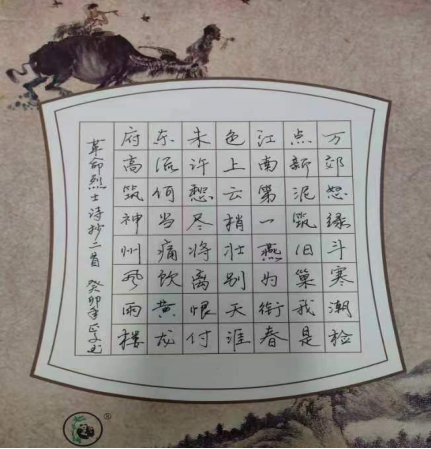 万郊怒绿斗寒潮检
点新泥筑旧巢我是
江南第一燕为衔春
色上云梢壮别天涯
未许愁尽将离恨付
东流何当痛饮黄龙
府高筑神州风雨楼
革命烈士诗抄二首 癸卯年